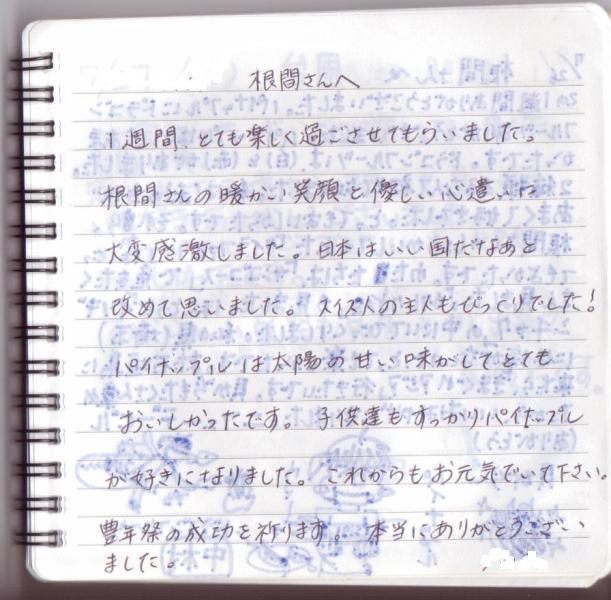 根間さんへ
1週間、とても楽しく過ごさせてもらいました。
根間さんの暖かい笑顔と優しい心遣いに
大変感激しました。日本はいい国だなあと
改めて思いました。スイス人の主人もびっくりでした!
パイナップルは太陽の甘い味がしてとても
おいしかったです。子供達もすっかりパイナップル
が好きになりました。これからもお元気でいて下さい。
豊年祭の成功を祈ります。本当にありがとうござい
ました。